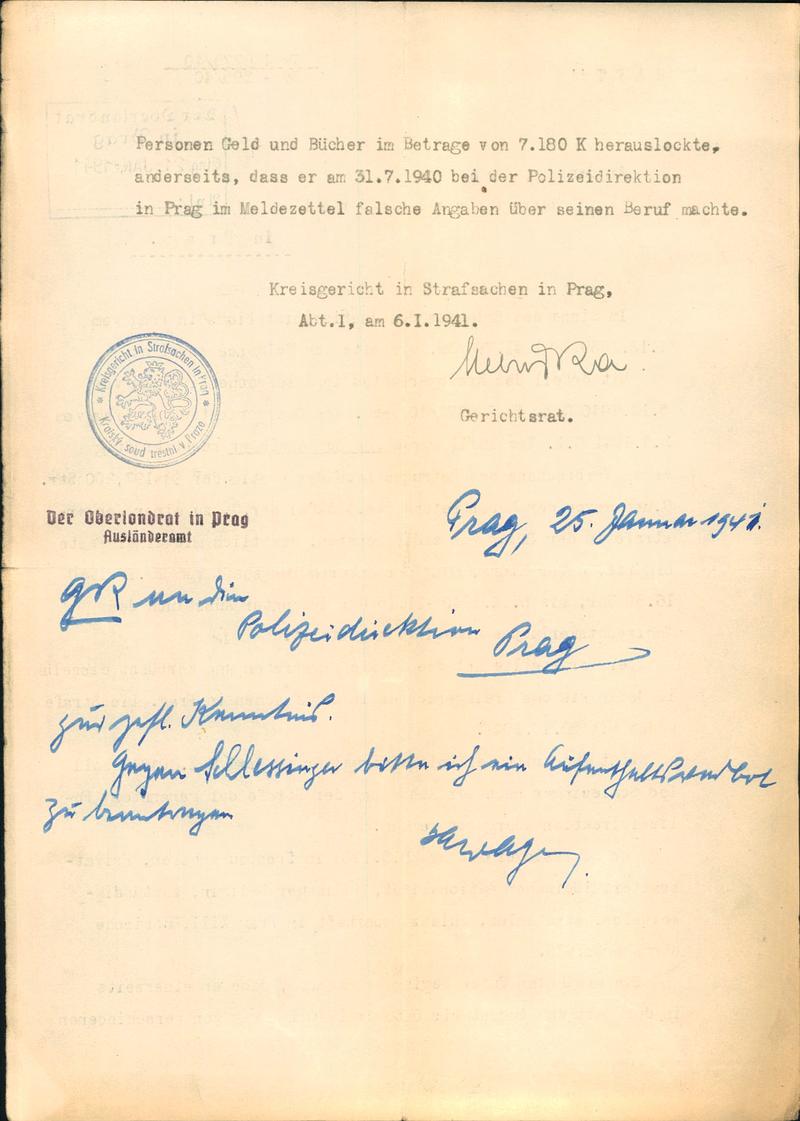 Personen Geld und Bücher im Betrage von 7.180 K herauslockte,
anderseits, dass er am 31.7.1940 bei der Polizeidirektion
in Prag im Meldezettel falsche Angaben über seinen Beruf machte.
Kreisgericht in Strafsachen in Prag,
Abt.I, am 6.I.1941.
Gerichtsrat.
* Kreisgericht in Strafsachen in Prag *
Krajský soud trestní v Praze
Der Oberlandrat in Prag
Ausländeramt
Prag, 25. Januar 1941.
gR an die
Polizeidirektion
Prag
zur gefl. Kenntnis.
Gegen Schlessinger bitte ich ein Aufenthaltsverbot
zu beantragen